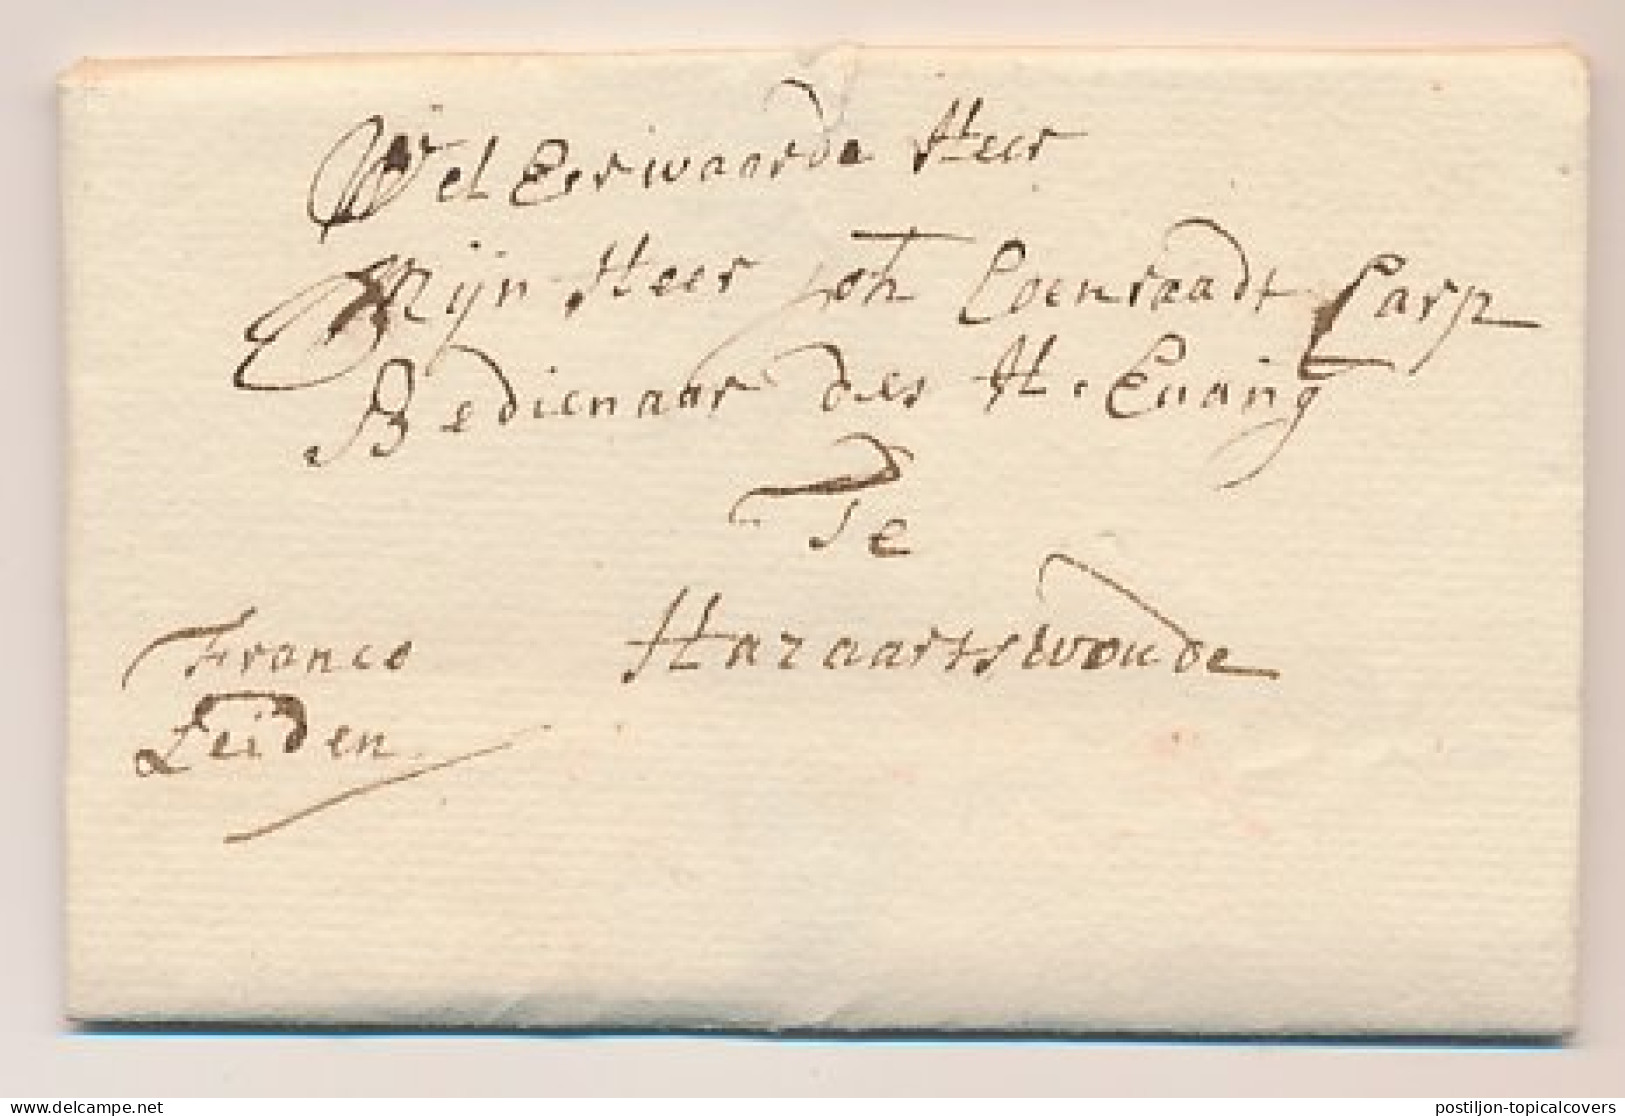 Wel Eerwaarde Heer
Mijn Heer Joh Coenraadt Carp
Bedienaar des H. Euang
Te
Hazaartswoude
Franco
Leiden
postiljon-topicalcovers